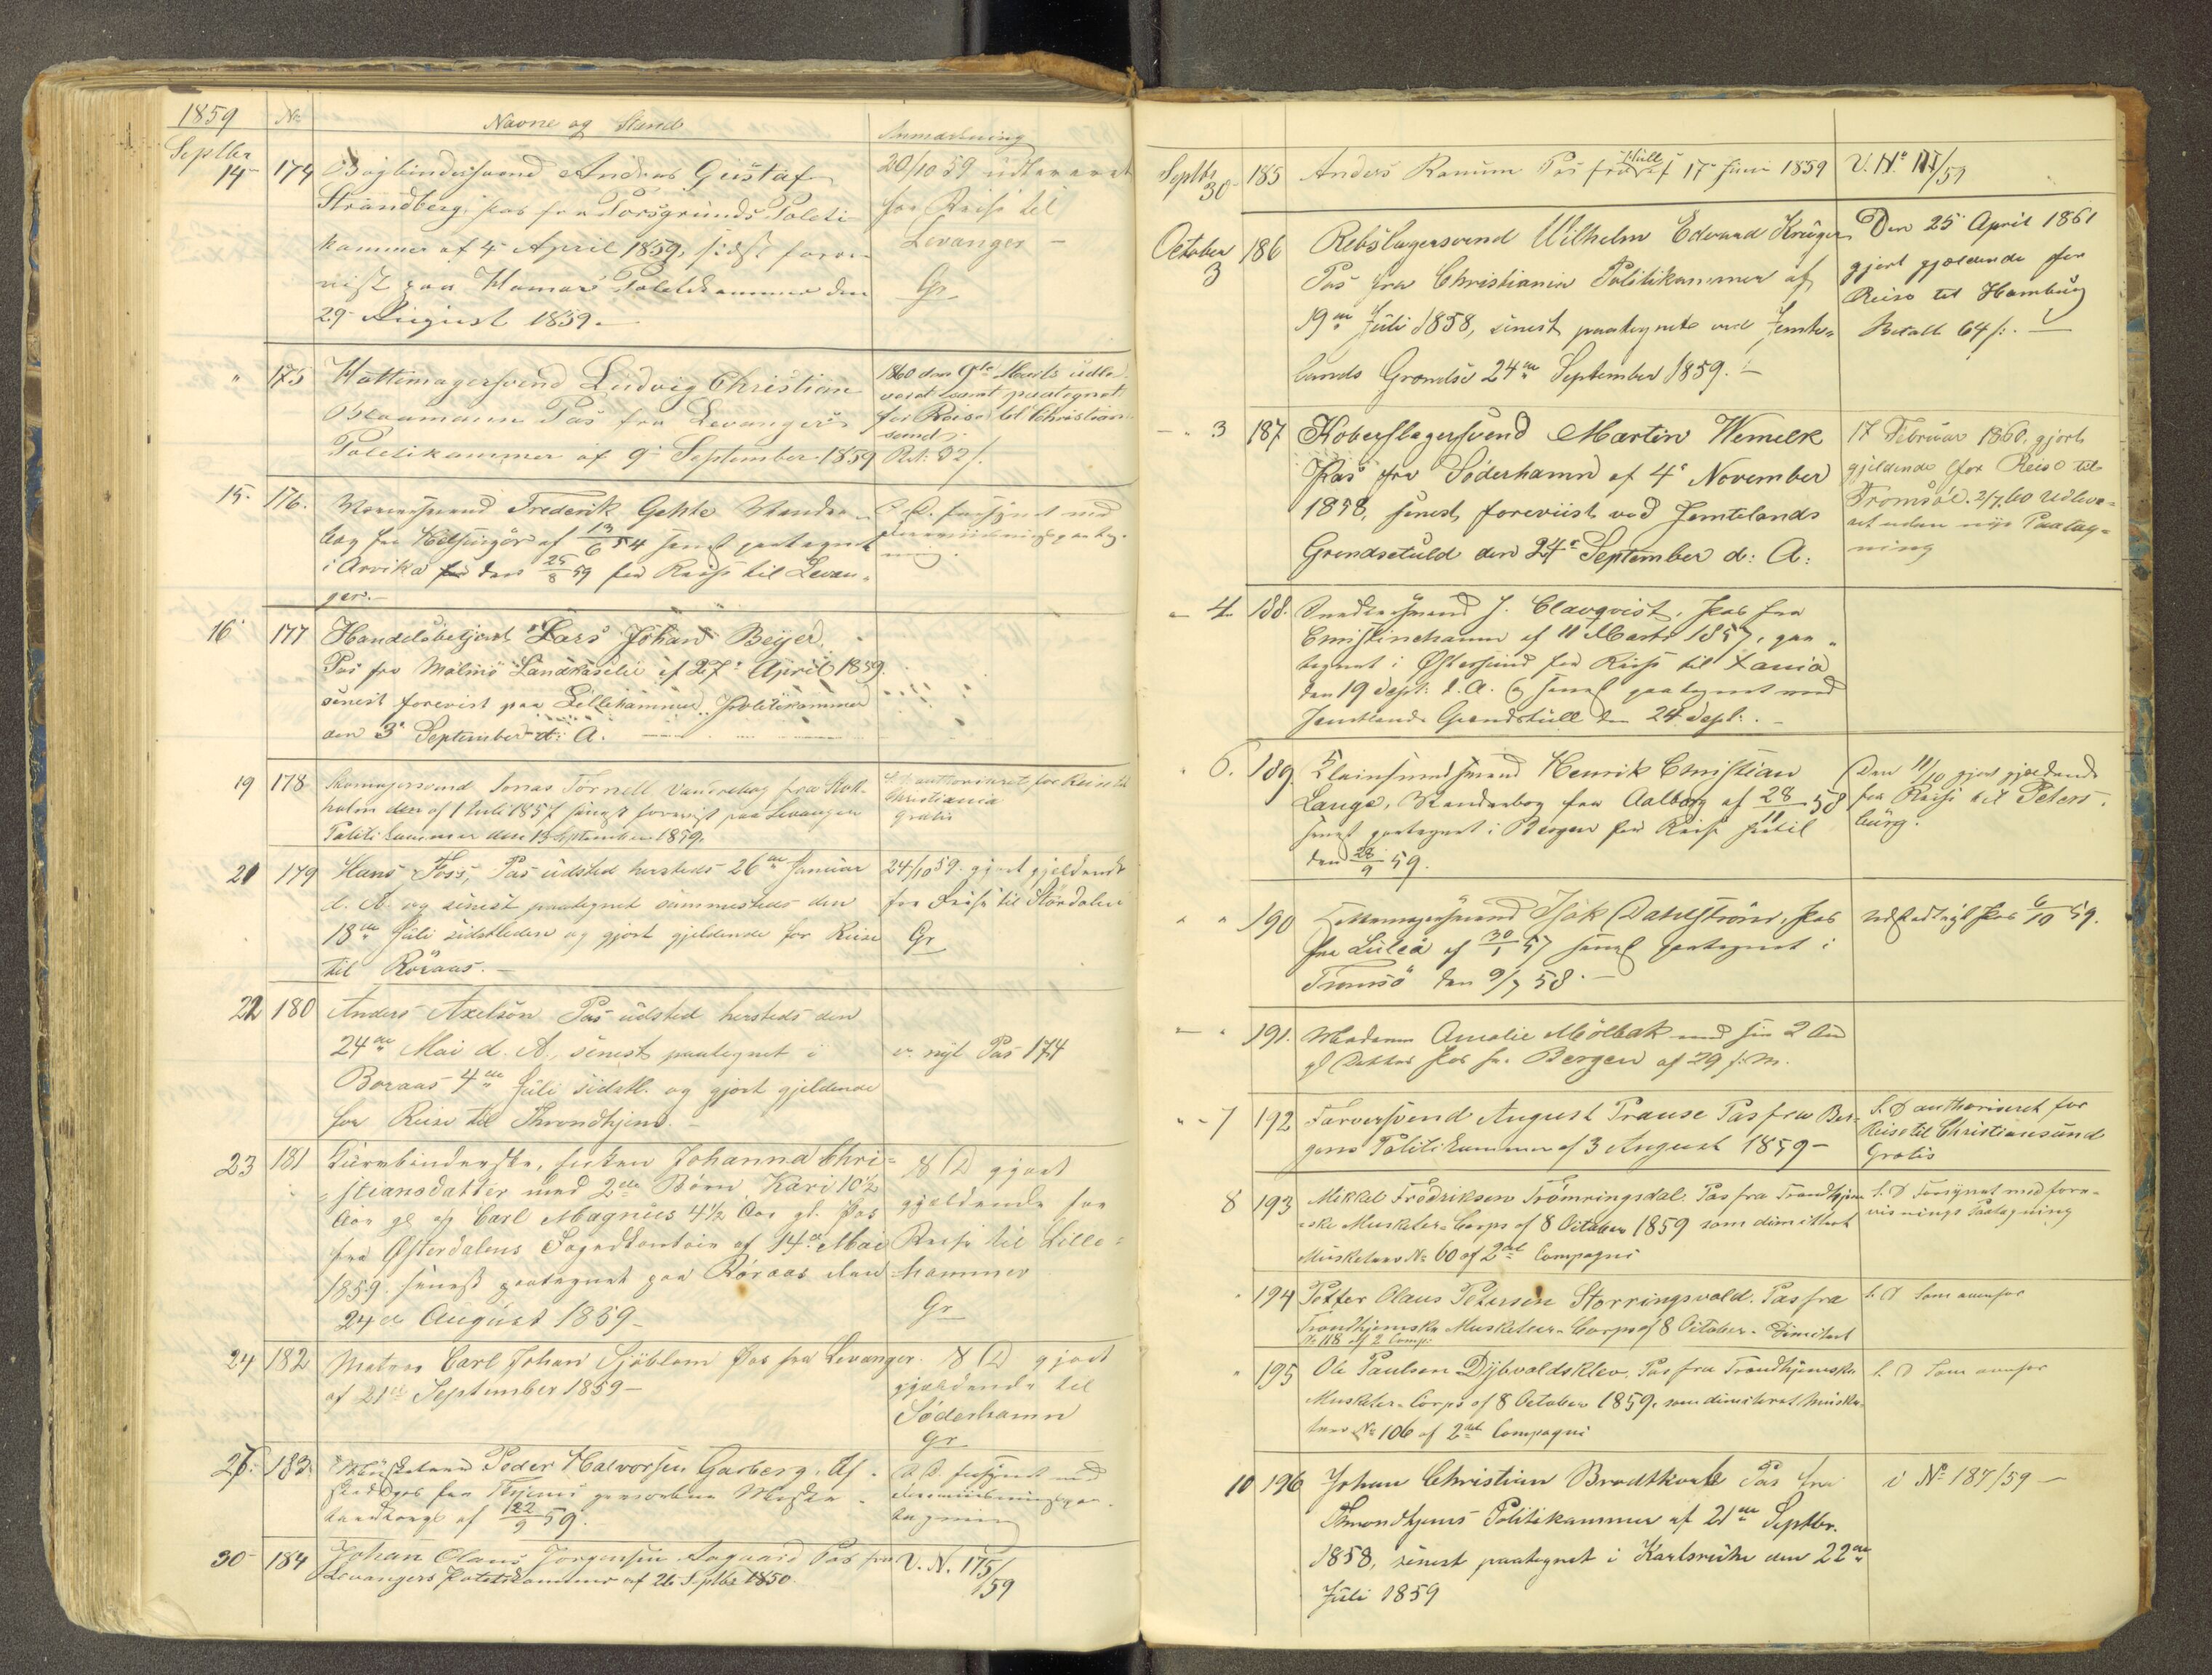 1859
No
Navne og Stand
Anmærkning
Septbr
14
174
Bogbindersvend Andreas Gustaf
Strandberg, Pas fra Porsgrunds Politi
kammer af 4 April 1859, sidst forevi
vist paa Hamar Politikammer den
29 August 1859.
20/10 59 udleveret
for Reise til
Levanger –
Gr
"
175
Hattemagersvend Ludvig Christian
Pas fra Levangers
Politikammer af 9 September 1859
1860 den 9de Marts udle-
veret samt paategnet
for Reise til Christian-
sund.
Bet: 32 s.
15.
176.
Frederik Gehte Vandre-
bog fra Helsingör af 13/6 54 senest paategnet
i Arvika den 25/8 59 for Reise til Levan-
ger.
S. D. forsynet med
forevisningspaateg-
ning.
16
177
Handelsbetjent Lars Johan Beijer.
Pas fra Malmö Landkanselie af 27 April 1859.
senest forevist paa Lillehammer Politikammer
den 3 September d: A.
19
178
Skomagersvend Jonas Törnell Vandrebog fra Stok-
holm den af 1 Juli 1857 senest forevist paa Levanger
Politikammer den 13 September 1859.
S. D. authoriseret for Reise til
Christiania
gratis
21
179
Hans Foss, Pas udsted hersteds 26de Januar
d. A. og senest paategnet sammesteds den
13de Juli sidstleden og gjort gjeldende for Reise
til Röraas. –
24/10 59. gjort gjeldende
for Reise til Stördalen
Gr
22
180
Anders Axelson Pas udsted hersteds den
24de Mai d. A., senest paategnet i
Boraas 4de Juli sidstl. og gjort gjeldende
for Reise til Throndhjem. –
v. nyt Pas 174
23
181
Kurvbinderske, Johanna Chri=
=stiansdatter med 2de Börn Kari 10½
Aar gl og Carl Magnus 4½ Aar gl. Pas
fra Østerdalens Fogedkontoir af 14de Mai
1859. senest paategnet paa Röraas den
24de August 1859 –
S D gjort
gjeldende for
Reise til Lille=
hammer
Gr
24
182
Carl Johan Sjöblom Pas fra Levanger
af 21de September 1859 –
S D gjort
gjeldende til
Söderhamn
Gr
183
Peder Halvorsen Garberg, Af-
af 22/9 59.
S. D. forsynet med
forevisningspaa-
tegning
30
184
Johan Olaus Jørgensen Aagaard Pas fra
Levangers Politikammer af 26 Septbr 1850.
V. N. 175/59
Septbr
30
185
Anders Ranum Pas fra af 17 Juni 1859
V. No
/59
October
3
186
Rebslagersvend Wilhelm Edvard Krüger
Pas fra Christiania Politikammer af
19de Juli 1858, senest paategnet ved Jemte-
lands Grændse 24de September 1859. –
Den 25 April 1861
gjort gjældende for
Reise til Hamburg
Betalt 64 s. –
– " 3
187
Kobberslagersvend Martin Wemelk
Pas fra Söderhamn af 4 November
1858, senest foreviist ved Jemtelands
Grendsetuld den 24 September d: A:
17 Februar 1860, gjort
gjeldende for Reise til
Tromsöe. 2/7 60 Udleve-
ret uden nye Paateg-
ning
– 4
188.
Snedkersvend J. Clavqvist, Pas fra
Christinehamn af 11 Marts 1857, paa-
tegnet i Østersund for Reise til Xania
den 19 Sept: d. A. og senest paategnet ved
Jemtlands Grendsetull den 24 Sept: . –
" 6.
189.
Henrik Christian
Lange, Vandrebog fra Aalborg af 28/11 58
senest paategnet i Bergen for Reise hertil
den 28/9 59.
Den 11/10 gjort gjeldende
for Reise til Peters-
burg.
" "
190
Isak Dahlström, Pas
fra Luleå af 30/1 57 senest paategnet i
Tromsö den 9/7 58. –
Udstedt nyt Pas 6/10 59.
– "
191.
Madam Amalie Mölbak med sin 2 Aar
gl Datter Pas fra Bergen af 29 f. M.
" – 7
192
Farversvend August Prause Pas fra Ber-
gens Politikammer af 3 August 1859 –
S. D authoriseret for
Reise til Christiansund
Gratis
8
193
Mekkel Fredriksen Trömringsdal. Pas fra Trondhjem
=ske Musketeer-Corps af 8 October 1859 som dimitteret
Musketeer No 60 af 2det Compagni
S. D Forsynet med fore-
visnings Paategning
"
194
Petter Olaus Petersen Storringsvold. Pas fra
Trondhjemske Musketeer-Corps af 8 October. Dimitert
No 118 af 2 Comp:
S. D som ovenfor
"
195
Ole Paulsen Dybvoldsklev, Pas fra Trondhjemske
Musketeer-Corps af 8 October 1859. som dimiteret Muske-
teer No 106 af 2det Compagni
S. D som ovenfor
10
196
Johan Christian Brodtkorb Pas fra
Throndhjems Politikammer af 21de Septbr.
1858, senest paategnet i Karlsruhe den 22de
Juli 1859
i No 187/59 –